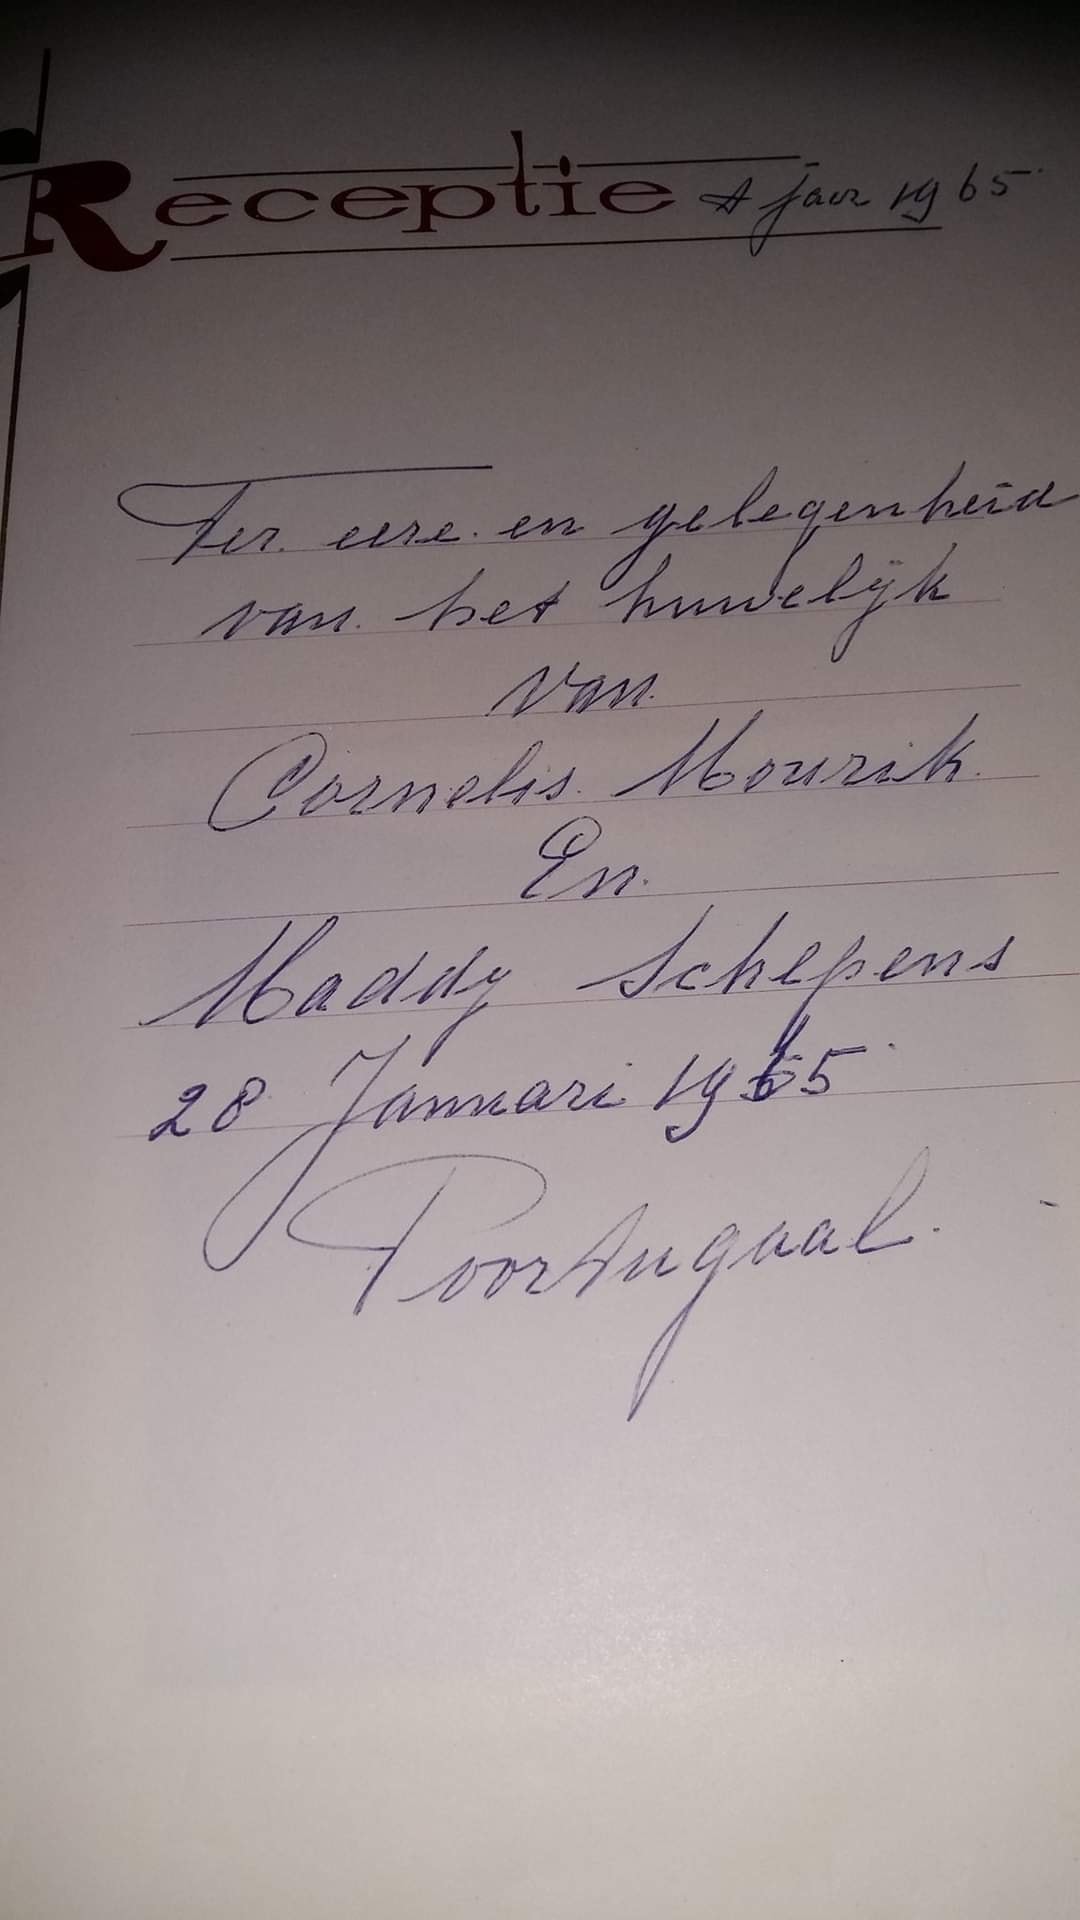 Receptie A jaar 1965
Ter. eere. en gelegenheid
van. het huwelijk
van.
Cornelis. Mourik.
En.
Maddy Schepens
28 Januari 1965
Poortugaal.